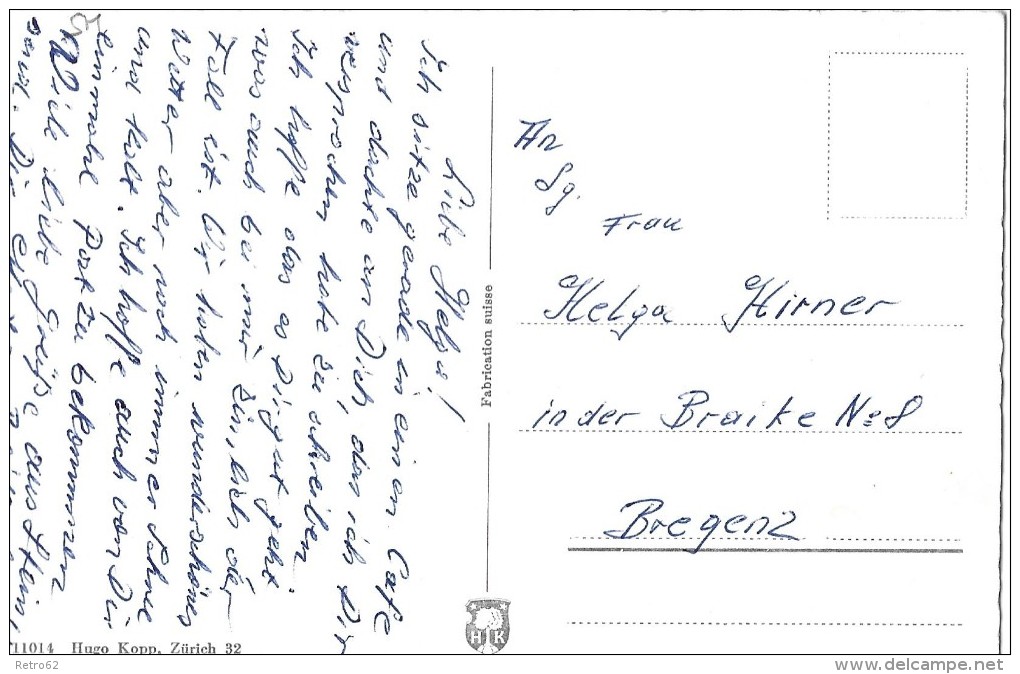 Liebe Helga!
Ich sitze gerade in einen Cafe
und dachte an Dich, das ich Dir
versprochen habe zu schreiben.
Ich hoffe das es Dir gut geht.
was auch bei mir zimlich der
Fall ist. Wir haben wunderschönes
Wetter aber noch immer Schnee
und kalt. Ich hoffe auch von Dir
einmahl Post zu bekommen
Viele liebe Grüße aus Stein,
An
Sg.
Frau
Helga Hirner
in der Braike No 8
Bregenz
Fabrication suisse
H K
11014 Hugo Kopp, Zürich 32
Retro62
delcampe.net